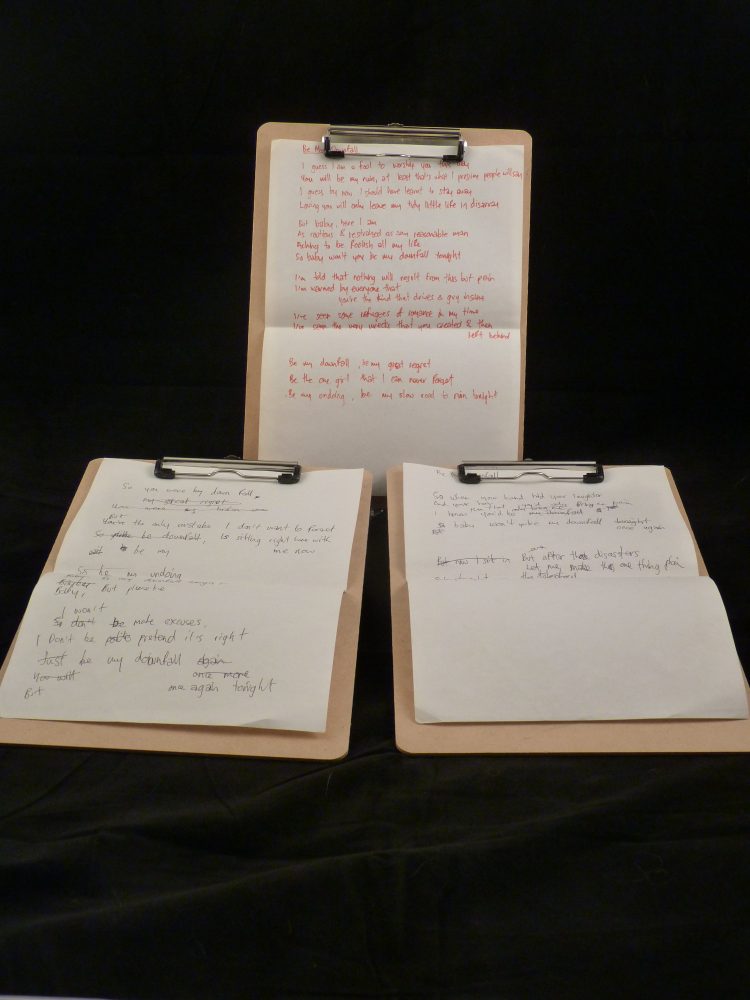 Be My Downfall
I guess I am a fool to worship you this way
You will be my ruin, at least that's what I presume people will say
I guess by now I should have learnt to stay away
Loving you will only leave my tidy little life in disarray
But baby, here I am
As cautious & restrained as any reasonable man
Aching to be foolish all my life
So baby won't you be my downfall tonight
I'm told that nothing will result from this but pain
I'm warned by everyone that
you're the kind that drives a guy insane
I've seen some refugees of romance in my time
I've seen the very wrecks that you created & then
left behind
Be my downfall, be my great regret
Be the one, girl that I can never forget
Be my undoing, be my slow road to ruin tonight
So you were my down fall
my great regret
But
You're the only mistake I don't want to forget
So be downfall, is sitting right here with
be my me now
So be my undoing
But please be
I won't
So don't be make excuses,
I Don't be pretend it is right
Just be my downfall again
You will once more
But once again tonight
Be My Downfall
So when your hand held your
I know you'd be my downfall
baby won't you be my downfall tonight
once again
But now I sit in But after disasters
Let me make this one thing plain